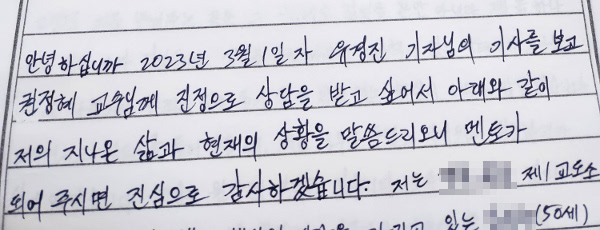 안녕하십니까 2023년 3월 1일 자 유경진 기자님의 기사를 보고
권정혜 교수님께 진정으로 상담을 받고 싶어서 아래와 같이
저의 지나온 삶과 현재의 상황을 말씀드리오니 멘토가
되어 주시면 진심으로 감사하겠습니다. 저는 제1교도소
있는 (50세)